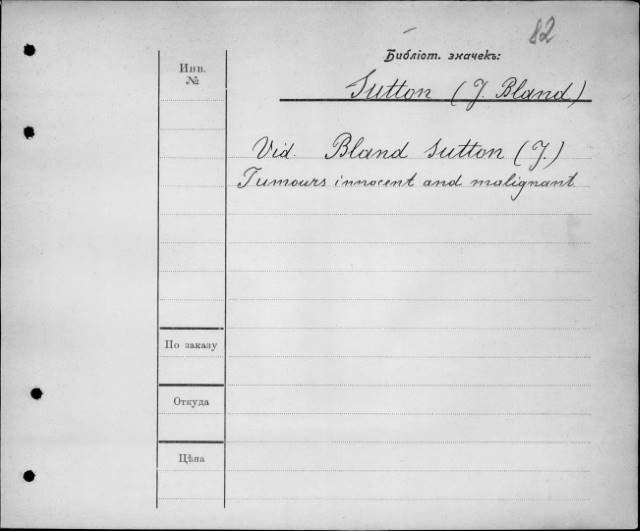 82
Библіот. значекъ:
Инв.
№
Sutton (J. Bland)
Vid. Bland Sutton (J.)
Tumours innocent and malignant
По заказу
Откуда
Цѣна